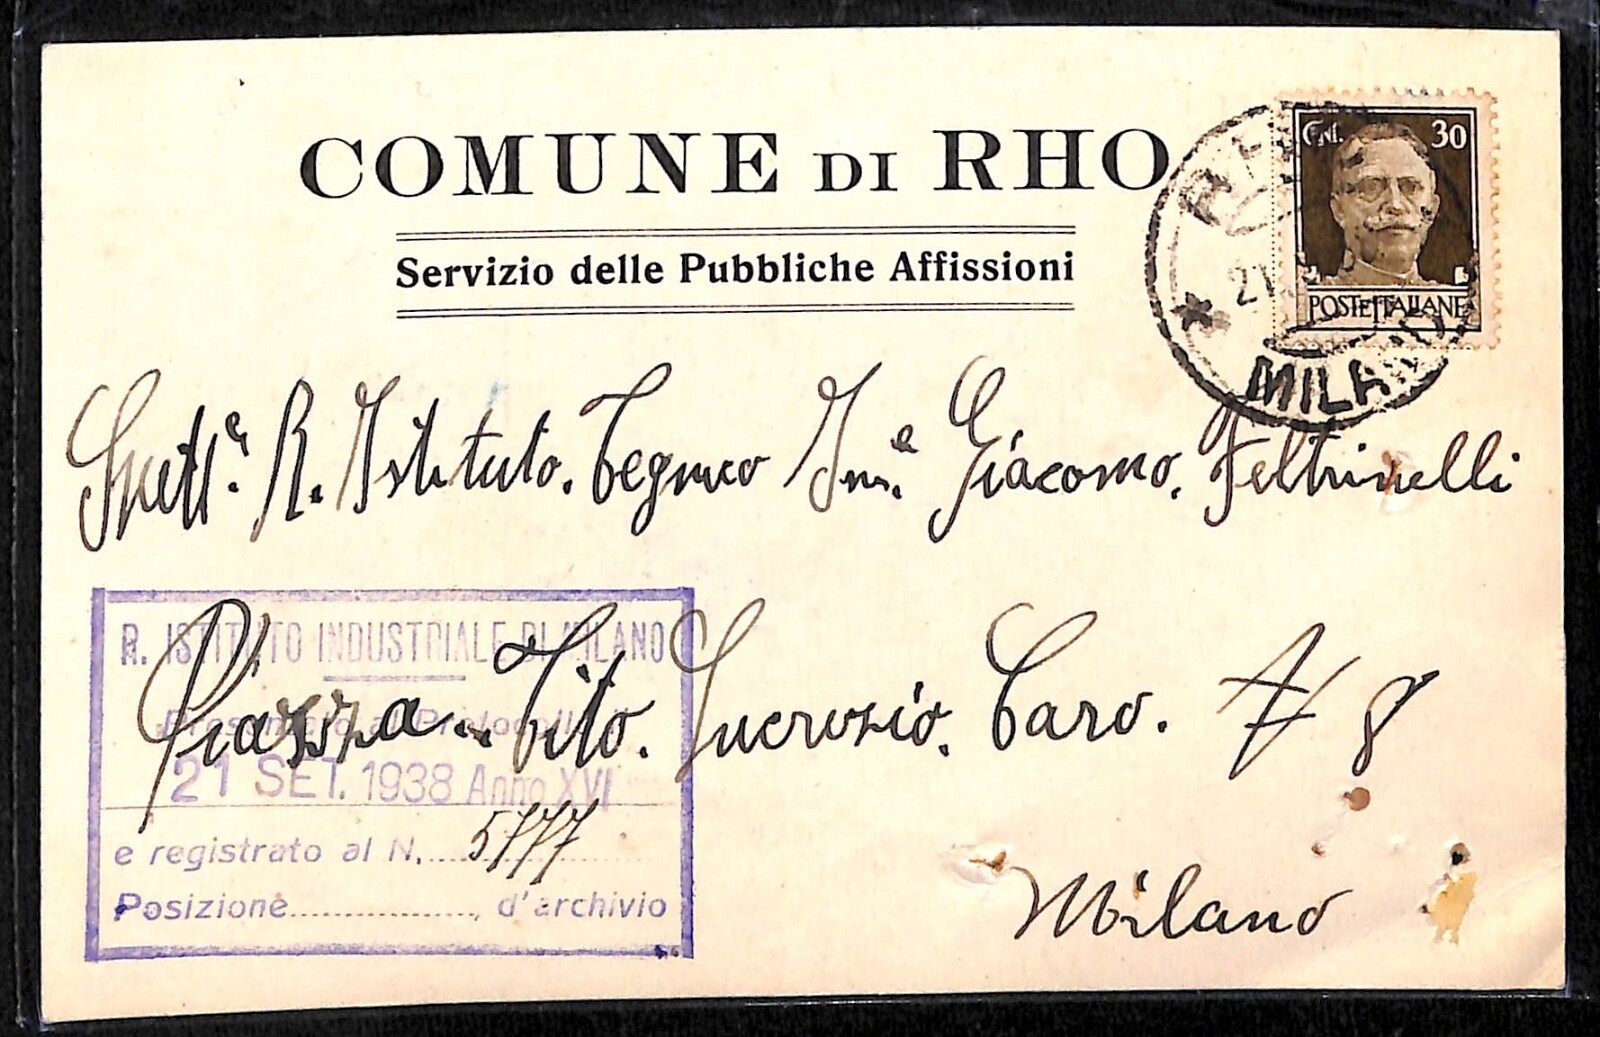 COMUNE DI RHO
Servizio delle Pubbliche Affissioni
CENT. 30
POSTE ITALIANE
* RHO *
21
MILANO
Spett.e R. Istituto. Tegnico Ind.e Giacomo. Feltrinelli
Piazza. Tito. Lucrezio. Caro. N 8
Milano
R. ISTITUTO INDUSTRIALE DI MILANO
Presentato al Protocollo il
21 SET. 1938 Anno XVI
e registrato al N. 5777
Posizione................., d'archivio